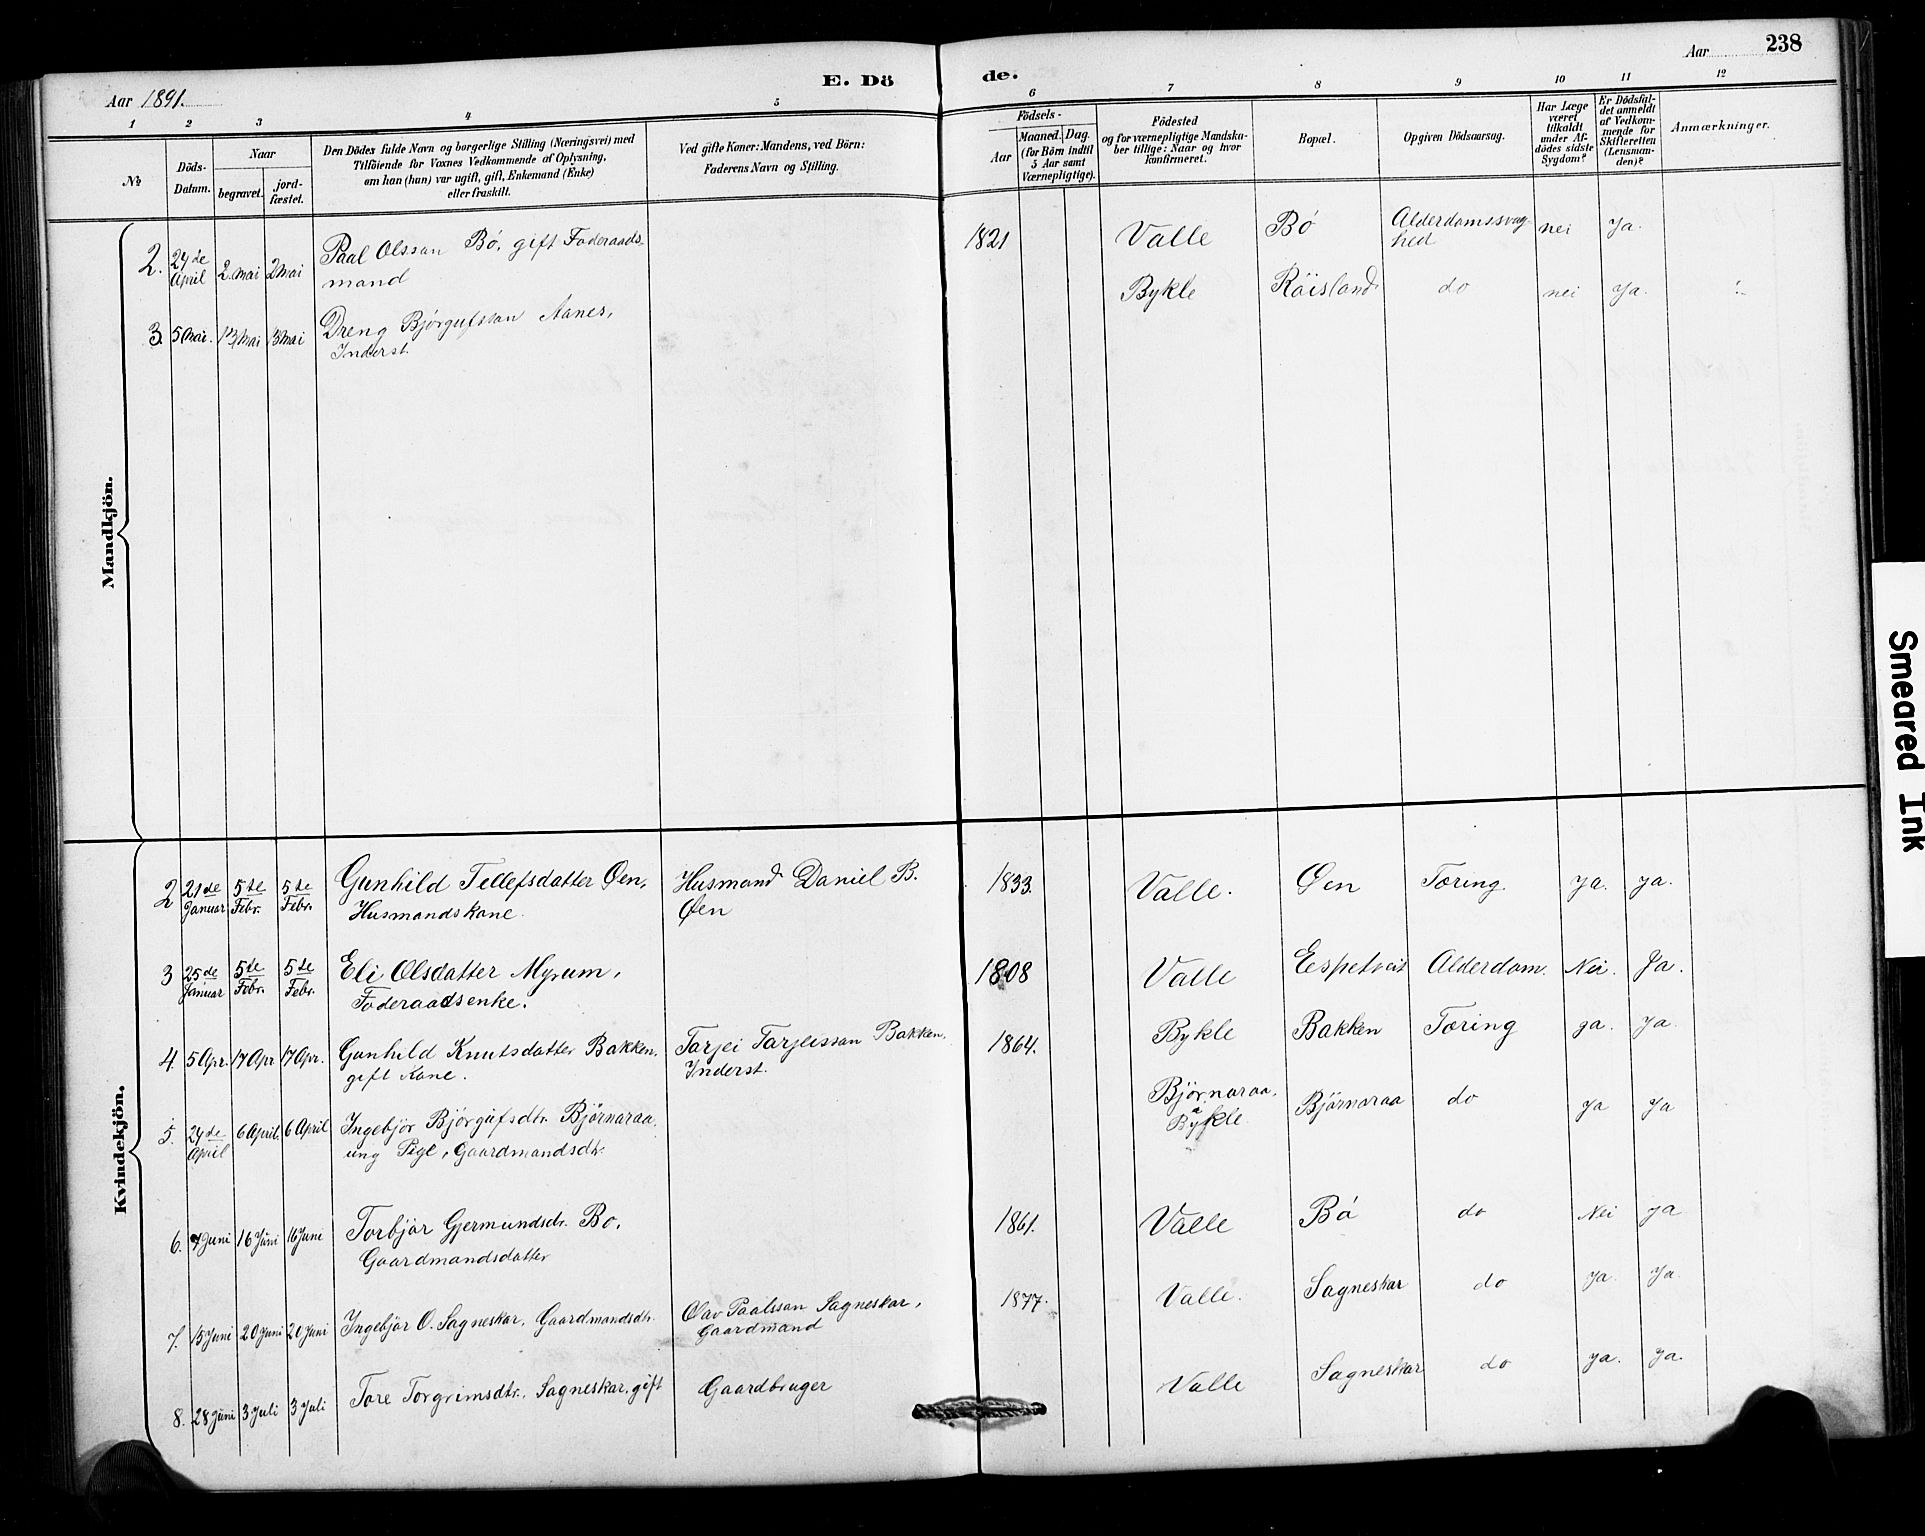 Aar 1891.
E. Dö
de.
Aar 238
1 2 3 4 5 6 7 8 9 10 11 12
№
Döds-
Datum.
Naar
begravet.
jord-
fæstet.
Den Dödes fulde Navn og borgerlige Stilling (Næringsvei) med
Tilföiende for Voxnes Vedkommende af Oplysning,
om han (hun) var ugift, gift, Enkemand (Enke)
eller fraskilt.
Ved gifte Koner: Mandens, ved Börn:
Faderens Navn og Stilling.
Födsels-
Aar
Maaned. Dag.
(for Börn indtil
5 Aar samt
Værnepligtige).
Födested
og for værnepligtige Mandska-
ber tillige: Naar og hvor
konfirmeret.
Bopæl.
Opgiven Dödsaarsag.
Har Læge
været
tilkaldt
under Af-
dödes sidste
Sygdom?
Er Dödsfal-
det anmeldt
af Vedkom-
mende for
Skifteretten
(Lensman-
den)?
Anmærkninger.
Mandkjön.
2. 24de April 2. mai 2 mai Paal Olsson Bö, gift Foderaads-
mand
1821 Valle Bö Alderdomssvag-
hed nei Ja.
3. 5 mai. 13 mai 13 mai Dreng Bjørgufsson Aanes,
Inderst.
Bykle Röisland do nei Ja.
Kvindekjön.
2 21de Januar 5te Febr. 5te Febr. Gunhild Tellefsdatter Øen,
Husmandskone.
Husmand Daniel B.
Øen
1833. Valle. Øen Tæring ja. ja.
3 25de Januar 5te Febr. 5te Febr. Eli Olsdatter Myrum,
Foderaadsenke.
1808 Valle Espetveit Alderdom. Nei. Ja.
4. 5 Apr. 17 Apr 17 Apr. Gunhild Knutsdatter Bakken,
gift Kone.
Tarjei Tarjeisson Bakken,
Inderst.
1864. Bykle Bakken Tæring ja. ja.
5. 24de April 6 April. 6 April Ingebjør Bjørgufsdtr. Björnaraa,
ung Pige, Gaardmandsdtr.
Bjørnaraa,
Bykle. Björnaraa do ja ja
6. 7 Juni 16 Juni 16 Juni Torbjør Gjermundsdr. Bö,
Gaardmandsdatter
1861. Valle Bö do Nei ja
7. 13 Juni 20 Juni 20 Juni Ingebjør O. Sagneskar, Gaardmandsdtr.
Olav Paalsson Sagneskar,
Gaardmand
1877. Valle. Sagneskar do ja. ja.
8. 28 Juni 3 Juli 3 Juli Tore Torgrimsdtr. Sagneskar, gift
Gaardbruger
Valle Sagneskar do ja. ja.
Smeared Ink